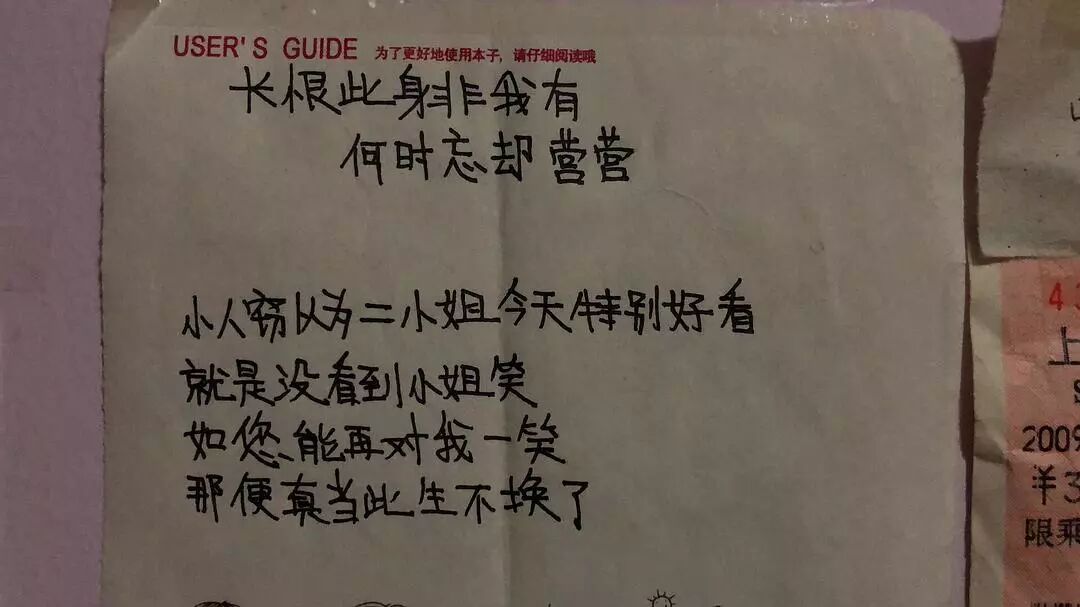 USER'S GUIDE 为了更好地使用本子，请仔细阅读哦
长恨此身非我有
何时忘却营营
小人窃以为二小姐今天特别好看
就是没看到小姐笑
如您能再对我一笑
那便真当此生不换了
4
上
S
2009
¥3
限乘